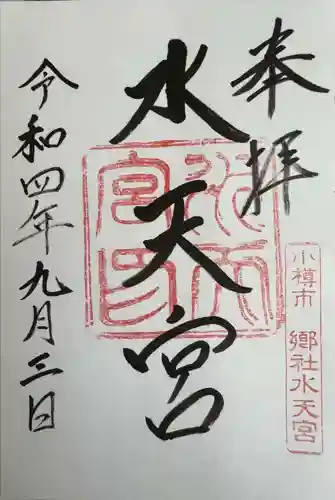 奉拝
水天宮
令和四年九月三日
小樽市 郷社水天宮